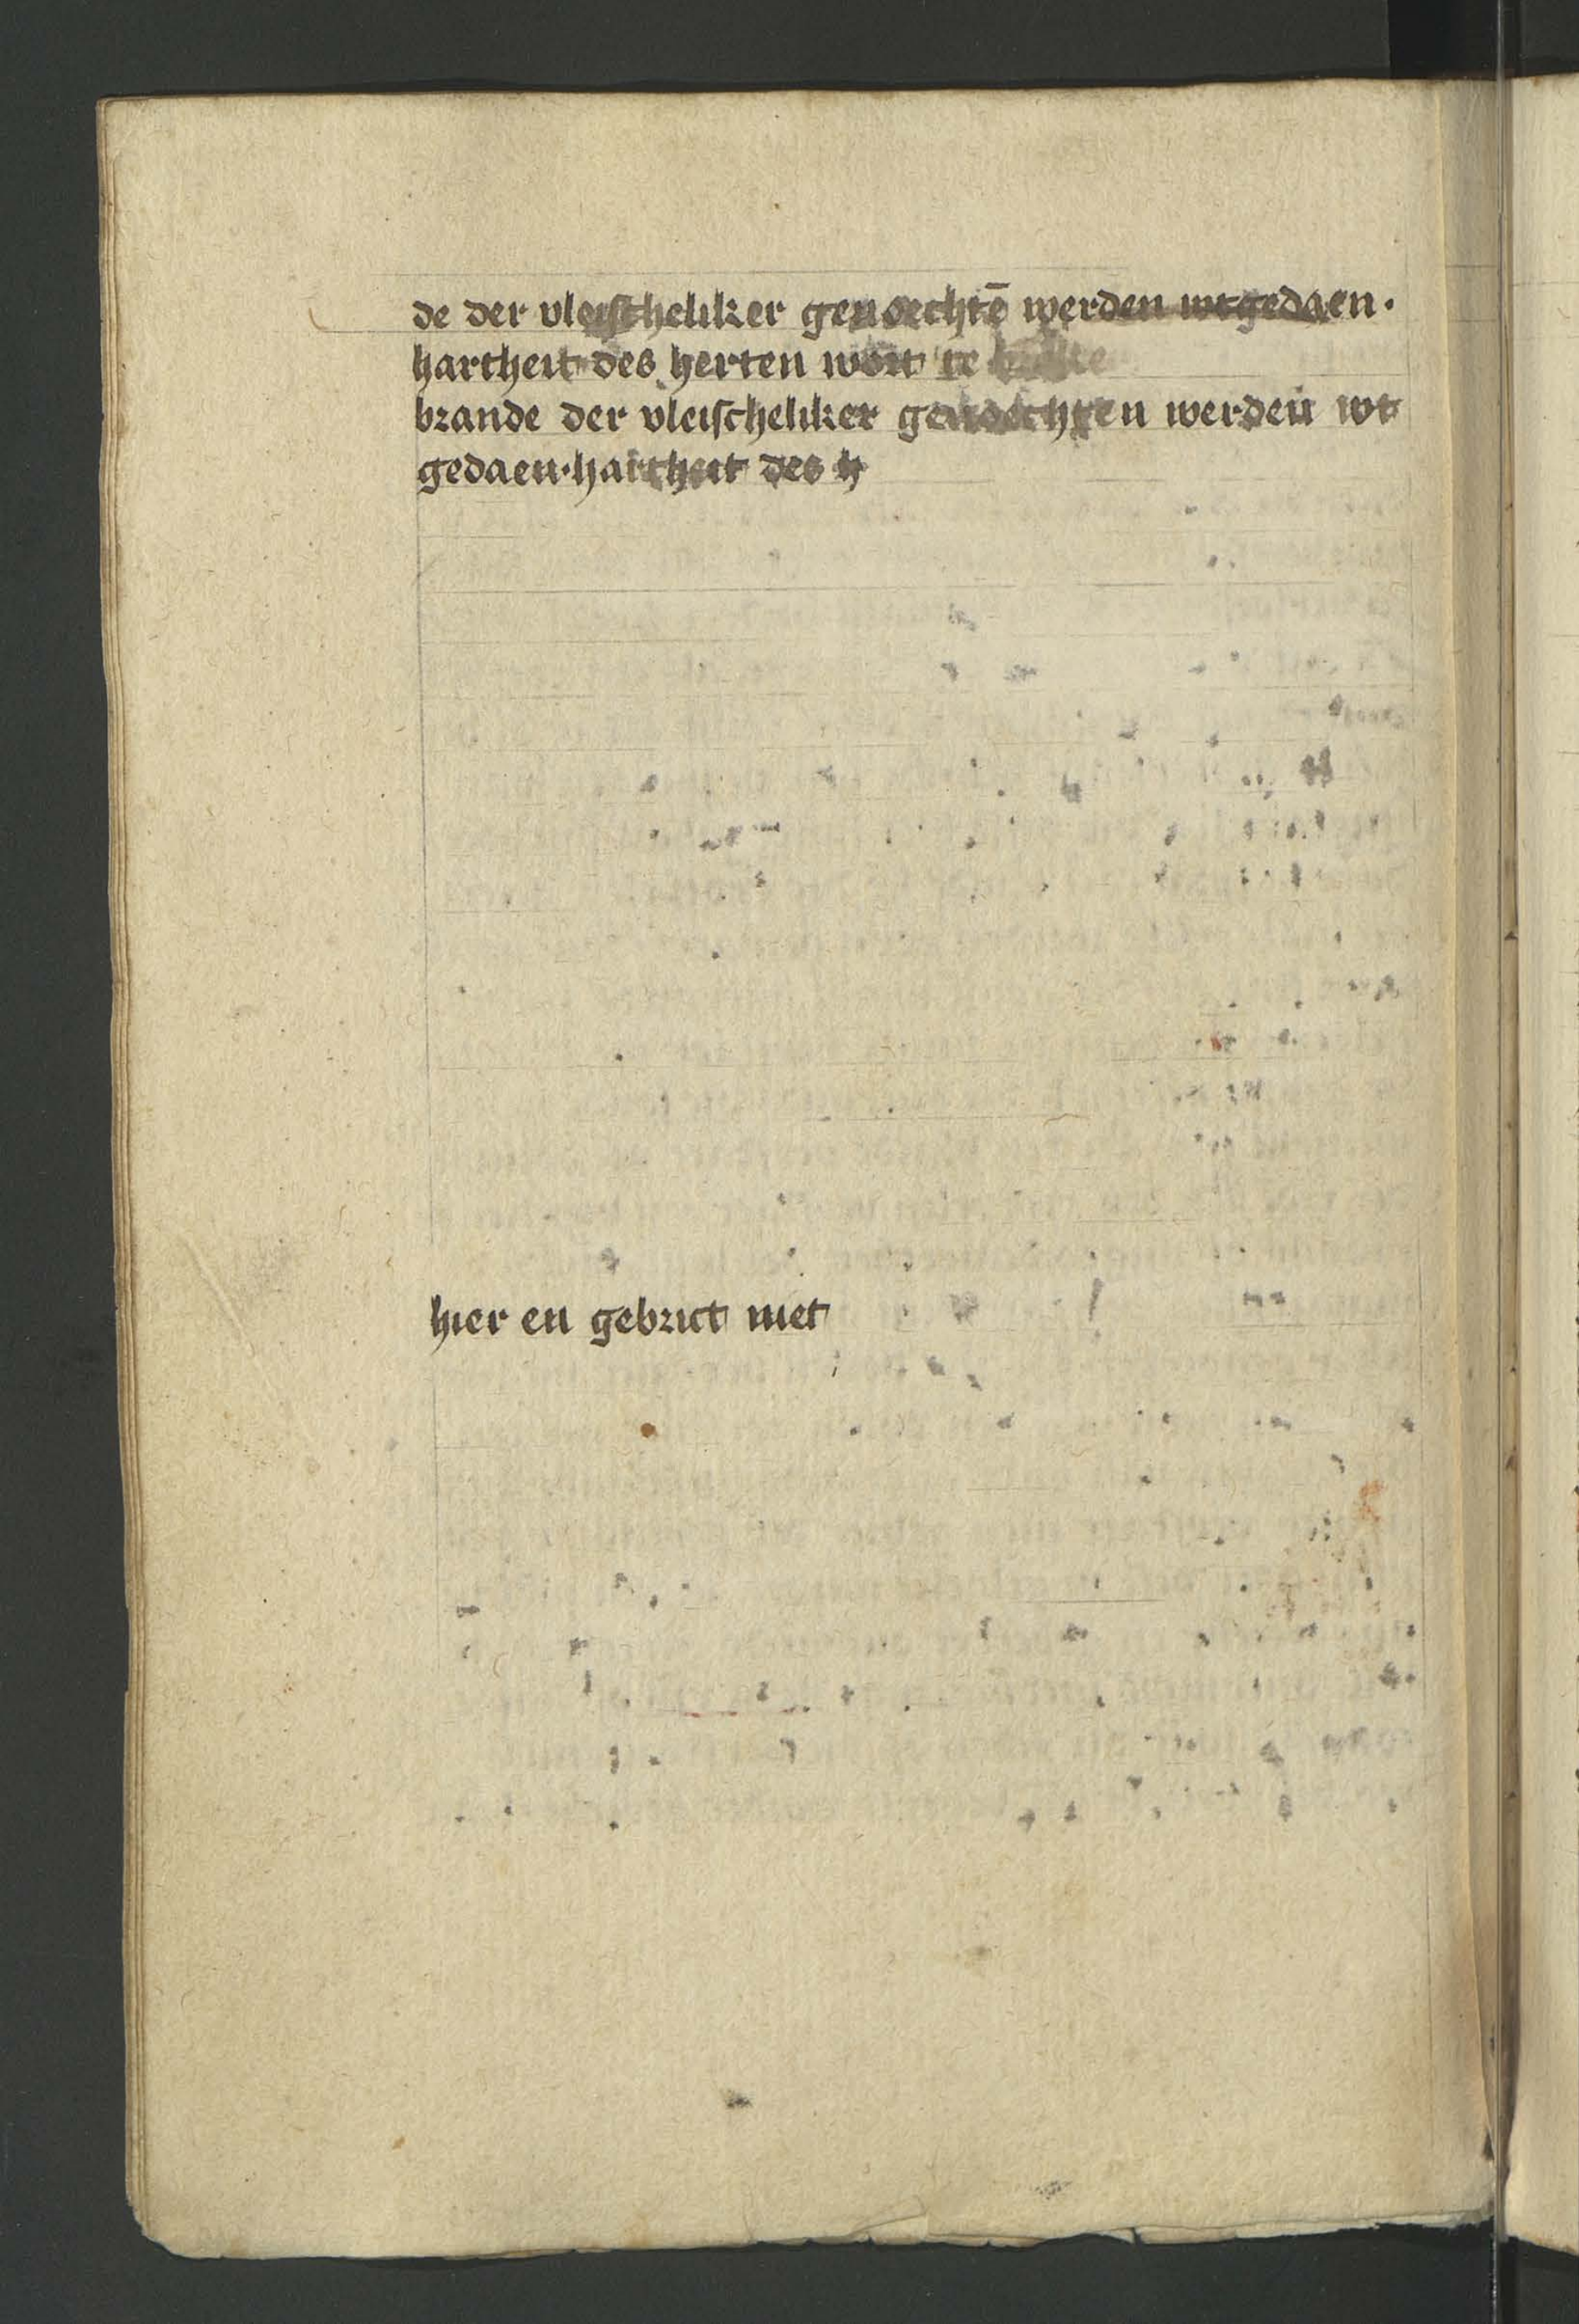 de der vleischeliker genoechtē werden wtgedaen.
hartheit des herten wort te
brande der vleischeliker genoechten werden wt
gedaen·hartheit des h
hier en gebrict niet